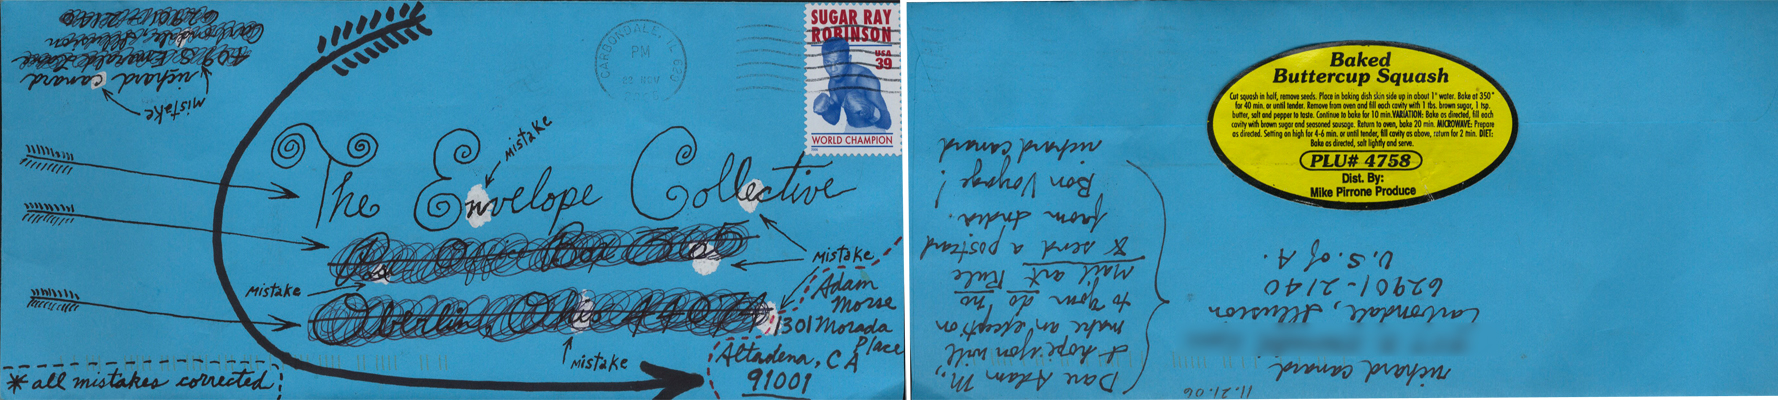 richard canard
mistake
CARBONDALE, IL 629
PM
21 NOV
SUGAR RAY
ROBINSON
USA
39
WORLD CHAMPION
mistake
The Envelope Collective
mistake
mistake
Oberlin, Ohio 44074
mistake
Adam
Morse
1301 Morada
Place
Altadena, CA
91001
* all mistakes corrected
Baked
Buttercup Squash
Cut squash in half, remove seeds. Place in baking dish skin side up in about 1" water. Bake at 350°
for 40 min. or until tender. Remove from oven and fill each cavity with 1 tbs. brown sugar, 1 tsp.
butter, salt and pepper to taste. Continue to bake for 10 min. VARIATION: Bake as directed, fill each
cavity with brown sugar and seasoned sausage. Return to oven, bake 20 min. MICROWAVE: Prepare
as directed. Setting on high for 4-6 min. or until tender, fill cavity as above, return for 2 min. DIET:
Bake as directed, salt lightly and serve.
PLU# 4758
Dist. By:
Mike Pirrone Produce
11.21.06
Dear Adam M.,
I hope you will
make an exception
to your do no
mail art Rule
& send a postcard
from India.
Bon Voyage!
richard canard
richard canard
Carbondale, Illusion
62901-2140
U.S. of A.